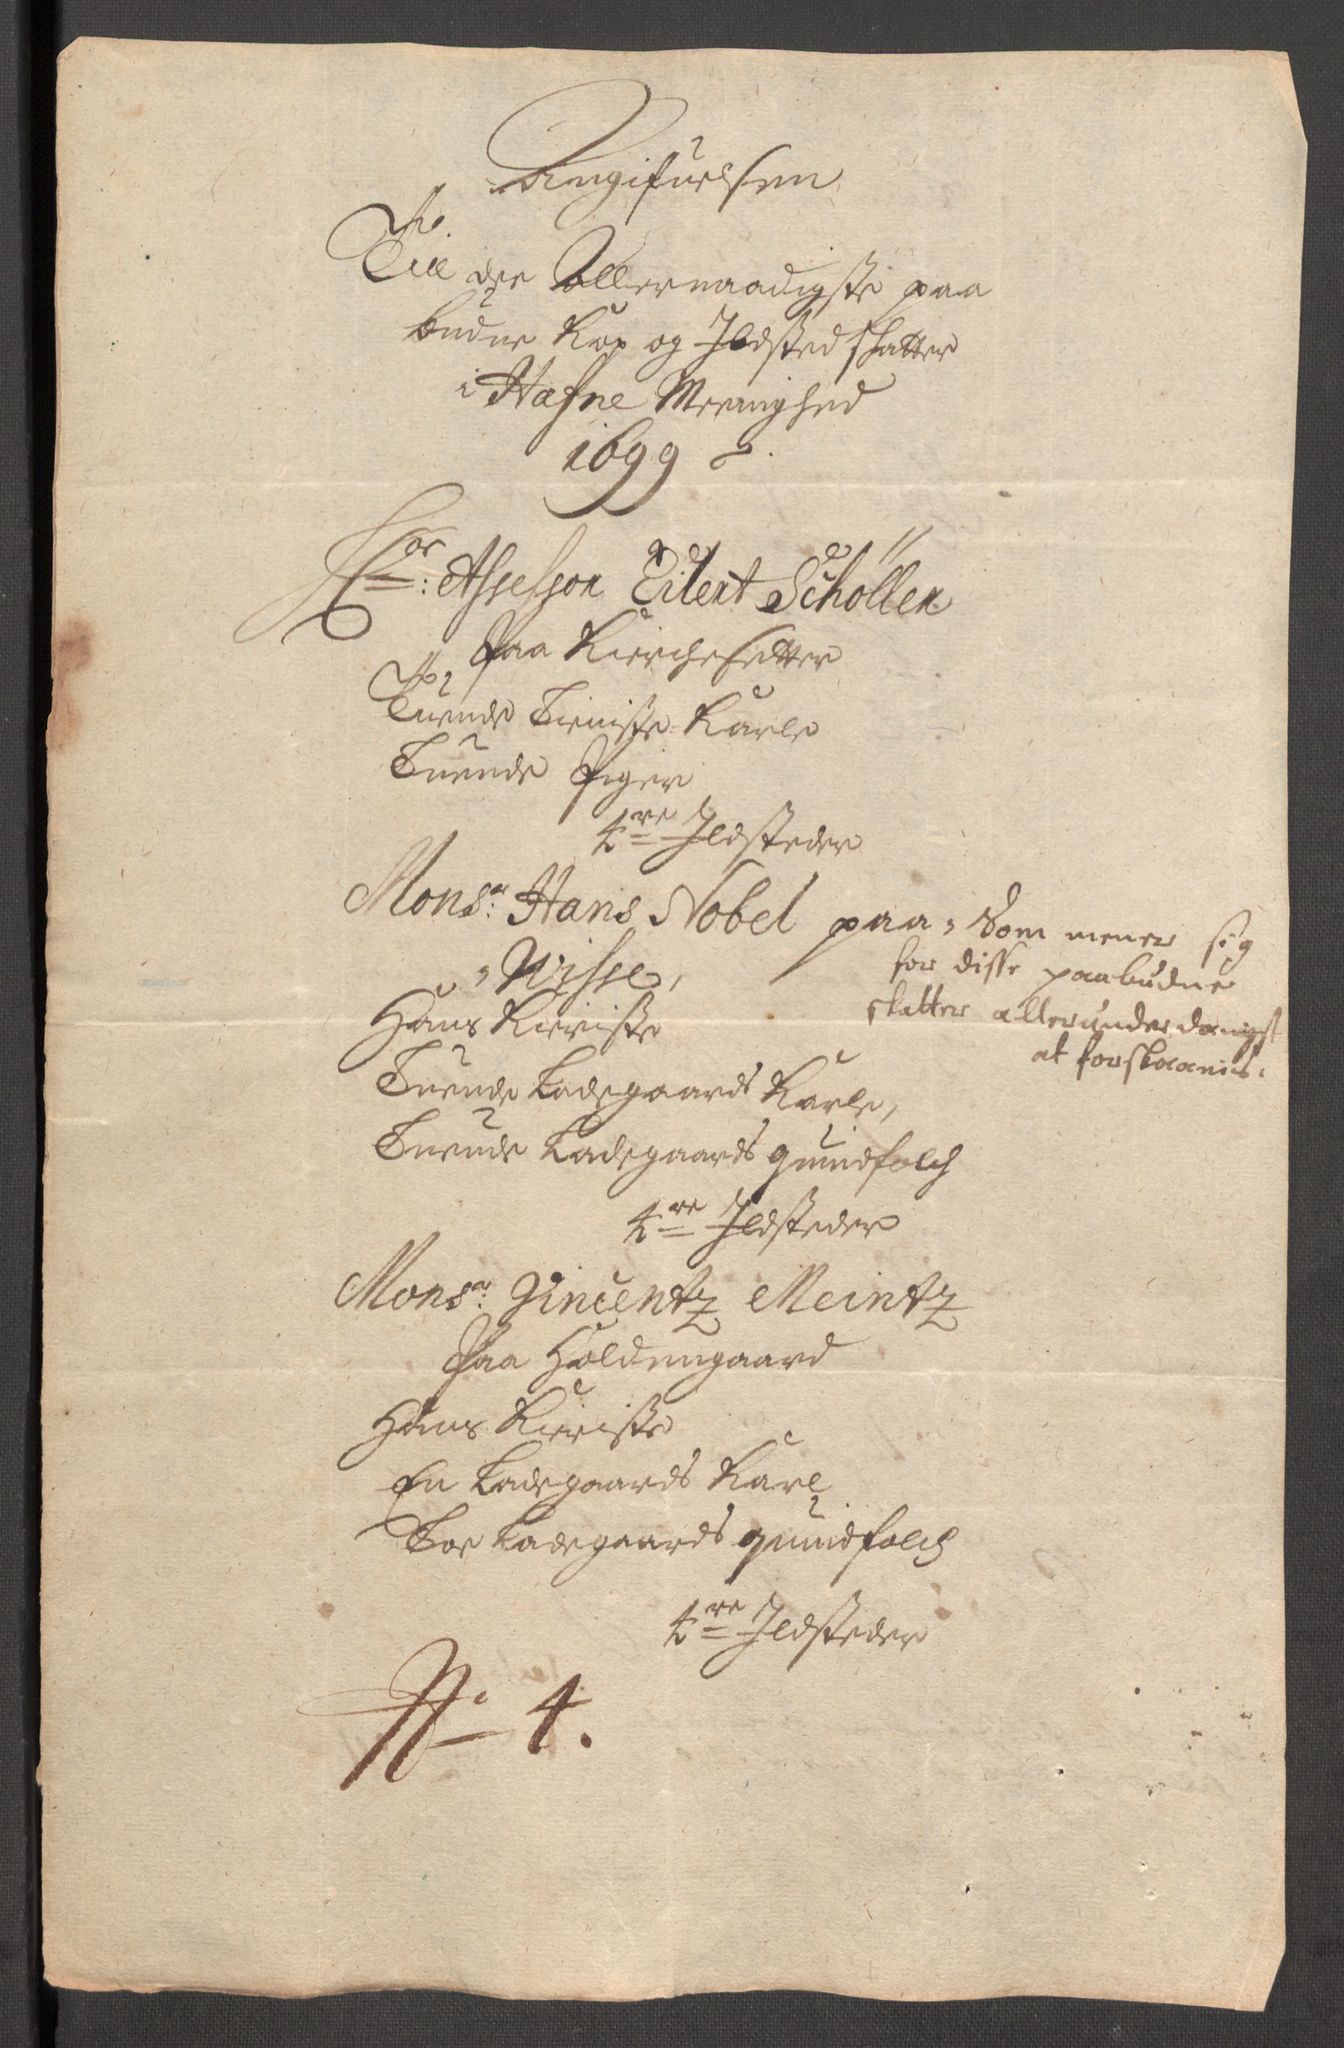 Angifuelsen
Till dee Allernaadigste paa
budne Kop og Ildsted skatter
i Hafne Meenighed
1699
Hr: Assessor Eilert Schöller
Paa Kierchesetter
Tuende Tieniste Karle
Tuende Piger
4re Ildsteder
Monsr: Hans Nobel paa, Som mener sig
Wisse, for disse paabudne
skatter allerunderdanigst
at forskaanis.
Hans Kieriste
Tuende Ladegaards Karle,
Tuende Ladegaards quindfolch
4re Ildsteder
Monsr: Vincentz Meintz
Paa Holdengaard
Hans Kieriste
En Ladegaards Karl
Toe Ladegaards quindfolch
4re Ildsteder
No 4.